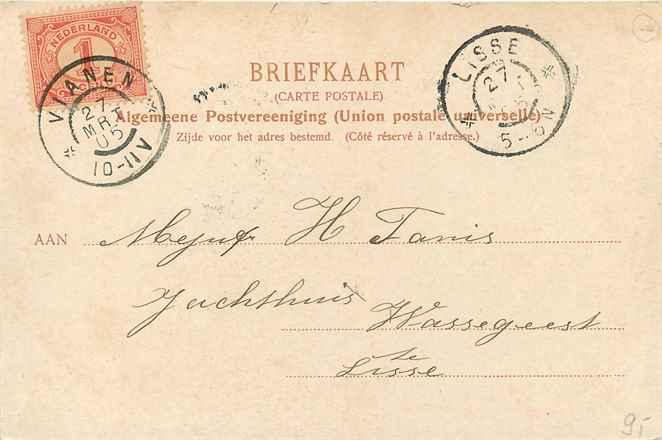 NEDERLAND
1
VIANEN
27
MRT
05
10-11V
LISSE
27
5-6N
BRIEFKAART
(CARTE POSTALE)
Algemeene Postvereeniging (Union postale universelle)
Zijde voor het adres bestemd. (Côté réservé à l'adresse.)
AAN Mejuf H Tanis
Jachthuis Wassegeest
te
Lisse
95-